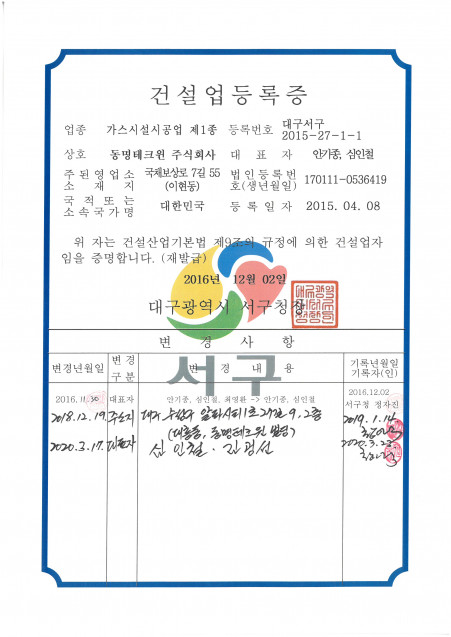 건설업등록증
업종 가스시설시공업 제1종 등록번호 대구서구 2015-27-1-1
상호 동명테크윈 주식회사 대표자 안기종, 심인철
주된영업소 소재지 국제보상로 7길 55 (이현동) 법인등록번호(생년월일) 170111-0536419
국적또는 소속국가명 대한민국 등록일자 2015.04.08
위 자는 건설산업기본법 제9조의 규정에 의한 건설업자
임을 증명합니다. (재발급)
2016년 12월 02일
대구광역시 서구청장
변경사항
서구
변경년월일 변경구분 변경내용 기록년월일 기록자(인)
2016.11.30 대표자 안기종, 심인철, 최영환 -> 안기종, 심인철 2016.12.02 서구청 정자진
2018.12.19 주소지 대구 수성구 알파시티1로 9, 2층 2019.1.14
(대흥동, 동명테크윈 빌딩)
2020.3.17. 대표자 심인철 · 김광선 2020.3.23